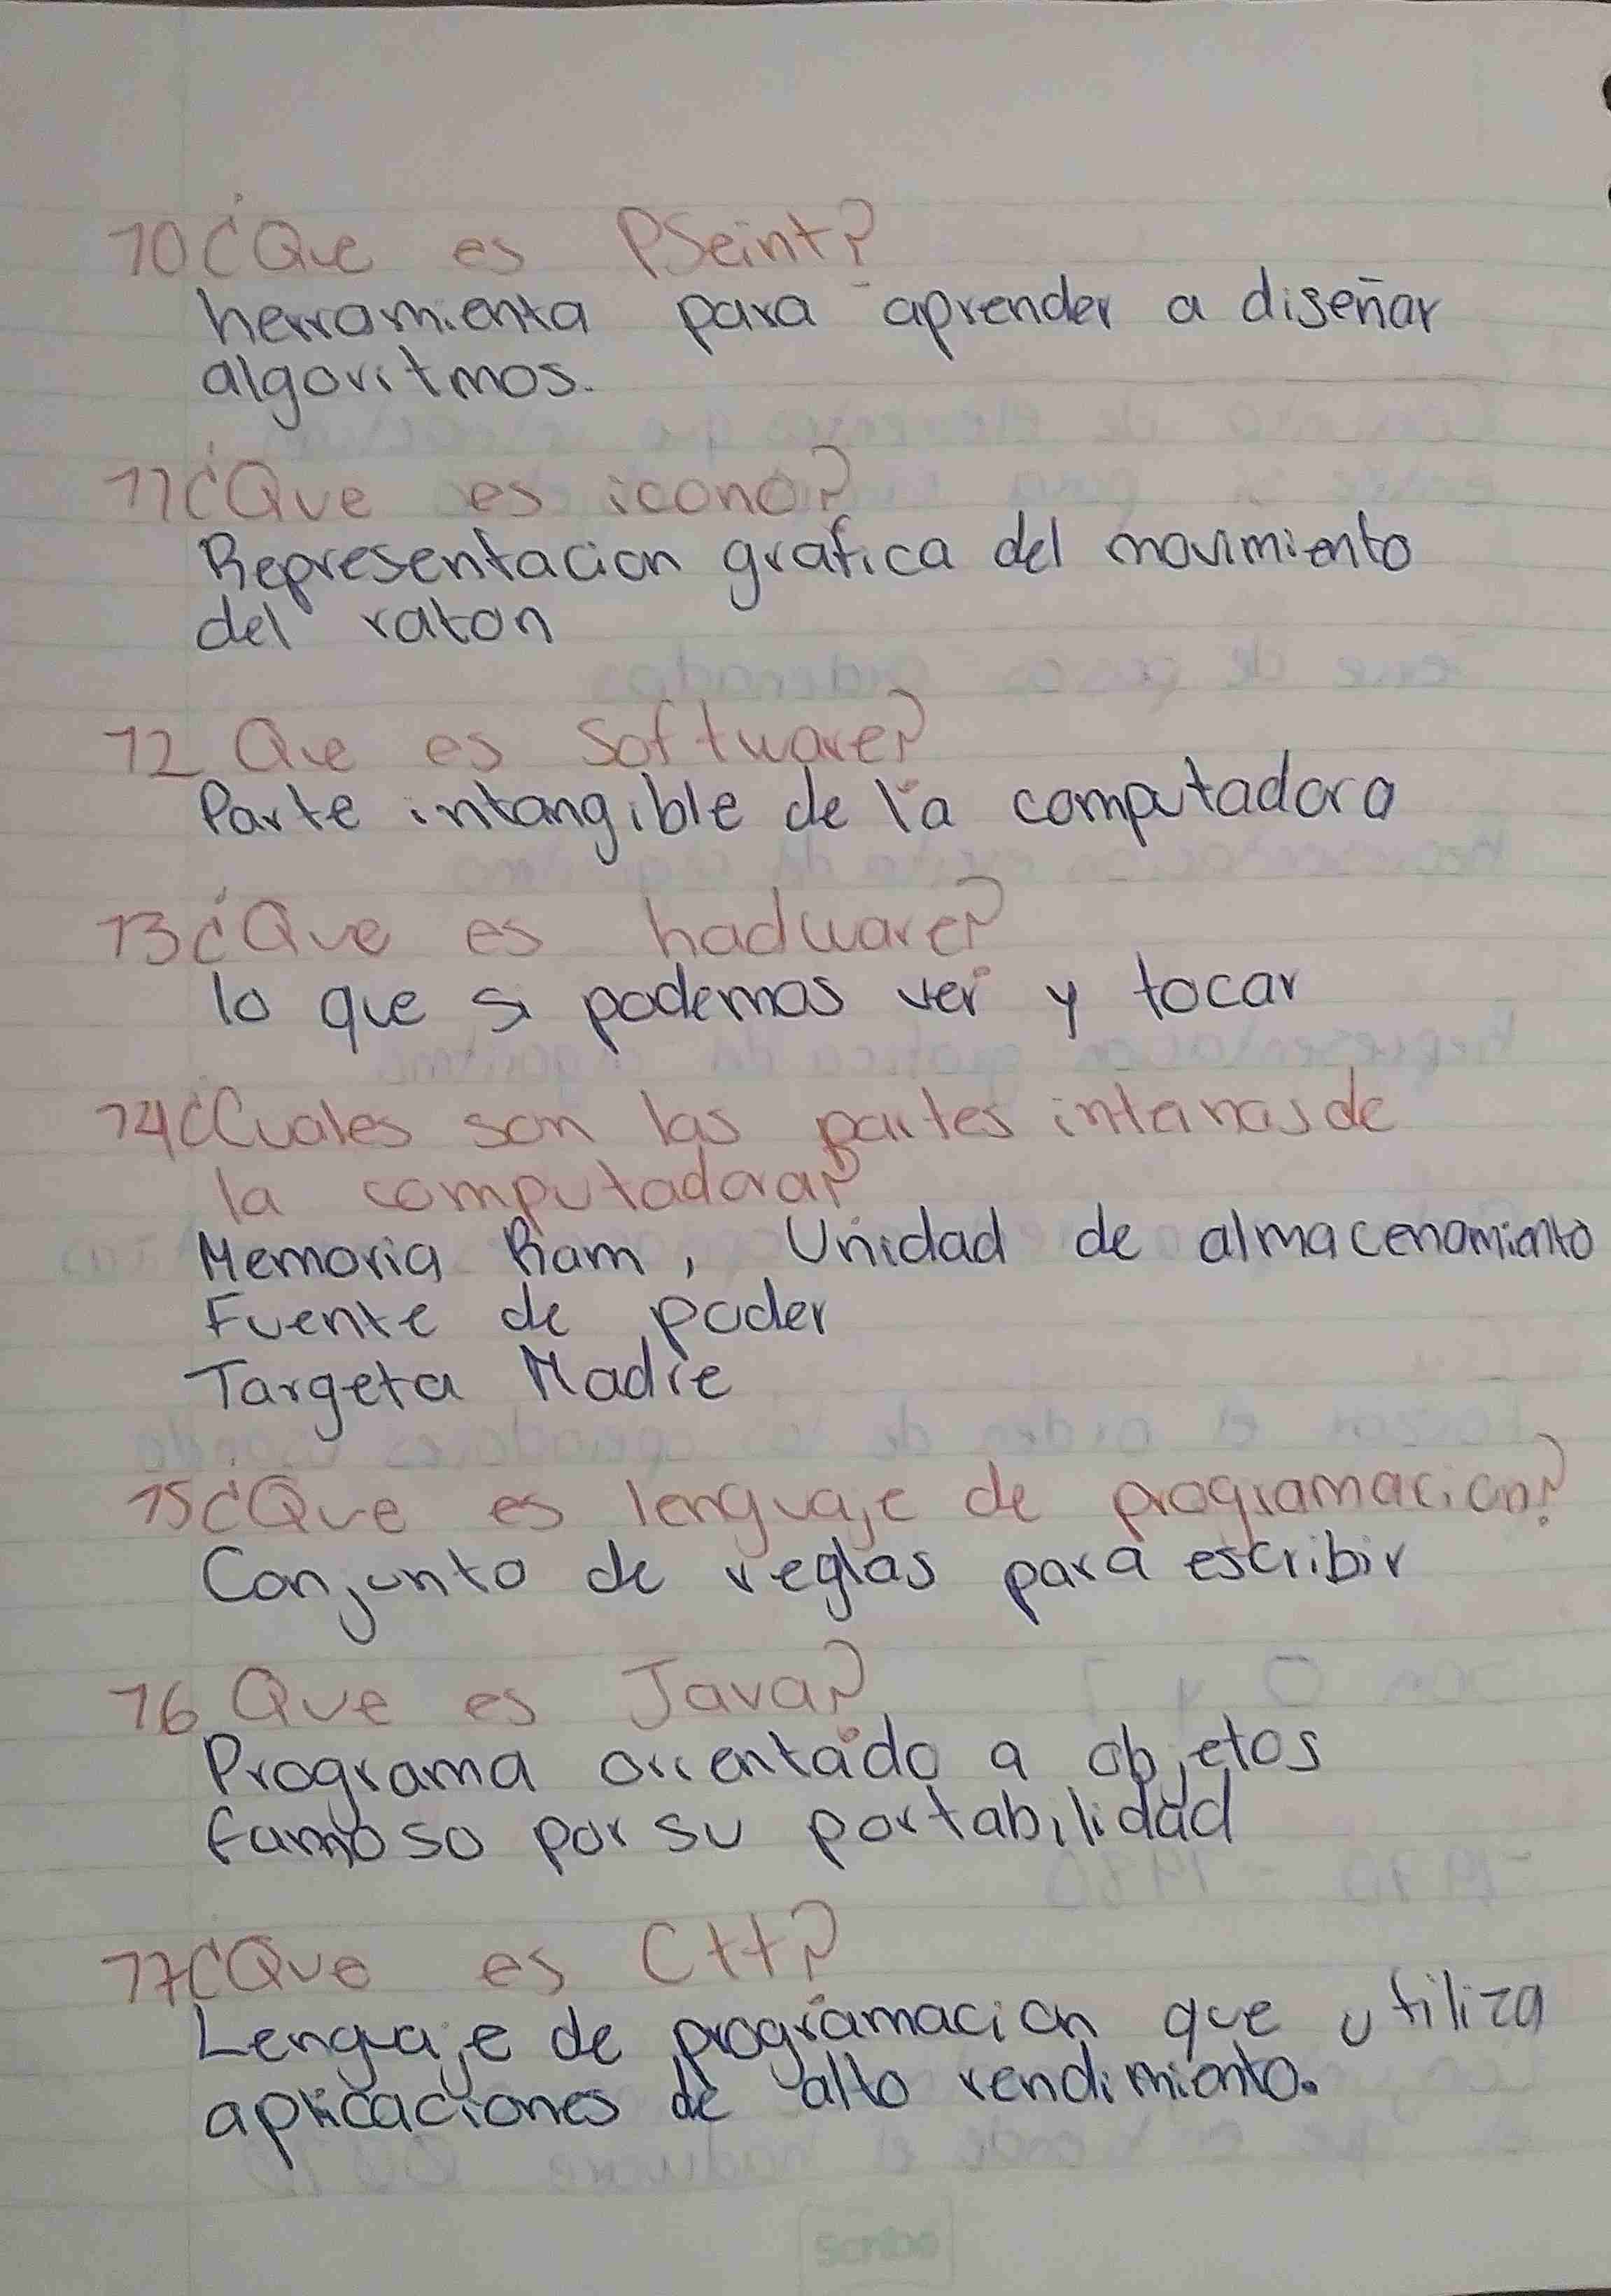 10 ¿Que es PSeint?
herramienta para aprender a diseñar
algoritmos.
11 ¿Que es icono?
Representacion grafica del movimiento
del raton
12 Que es Software?
Parte intangible de la computadora
13 ¿Que es hadware?
lo que si podemos ver y tocar
14 ¿Cuales son las partes internas de
la computadora?
Memoria Ram, Unidad de almacenamiento
Fuente de poder
Targeta Madre
15 ¿Que es lenguaje de programacion?
Conjunto de reglas para escribir
16 Que es Java?
Programa orientado a objetos
famoso por su portabilidad
17 ¿Que es C++?
Lenguaje de programacion que utiliza
aplicaciones de alto rendimiento.
Scribe